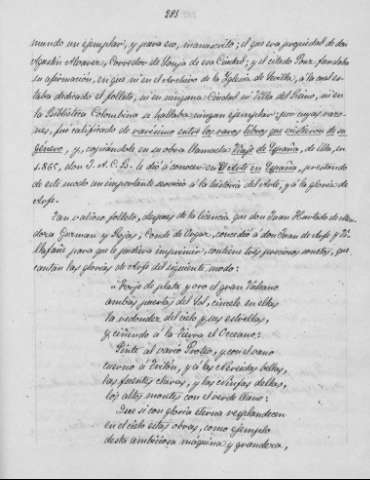 283
mundo un ejemplar, y para eso, manuscrito; el que era propiedad de don
Agustin Alvarez, Corredor de Lonja de esa Ciudad; y el citado Ponz fundaba
su afirmacion, en que ni en el Archivo de la Iglesia de Sevilla, á la cual es-
taba dedicado el folleto, ni en ninguna Ciudad ni Villa del Reino, ni en
la Biblioteca Colombina se hallaba ningun ejemplar: por cuyas razo-
nes, fué calificado de rarisimo entre los raros libros que existieron de su
género, y, copiándole en su obra llamada Viaje de España, de ella, en
1.866, don J. A. C. B. le dió á conocer en El Arte en España, prestando
de este modo un importante servicio á la historia del Arte, y á la gloria de
Arfe.
Tan valioso folleto, despues de la licencia que don Juan Hurtado de Men-
doza Guzman y Rojas, Conde de Orgaz, concedió á don Juan de Arfe y Vi-
llafañe para que le pudiera imprimir, contiene los preciosos sonetos, que
cantan las glorias de Arfe del siguiente modo:
de plata y oro el gran Vulcano
ambas puertas del Sol, cincele en ellas
la redondez del cielo y sus estrellas,
y ciñendo á la tierra el Oceano:
Pinte al vario Proteo, y con el vano
cuerno á Triton, y á las Nereidas bellas,
las fuentes claras, y las ninfas dellas,
los altos montes con el verde llano:
Que si con gloria eterna resplandecen
en el cielo estas obras, como ejemplo
desta ambiciosa máquina y grandeza,